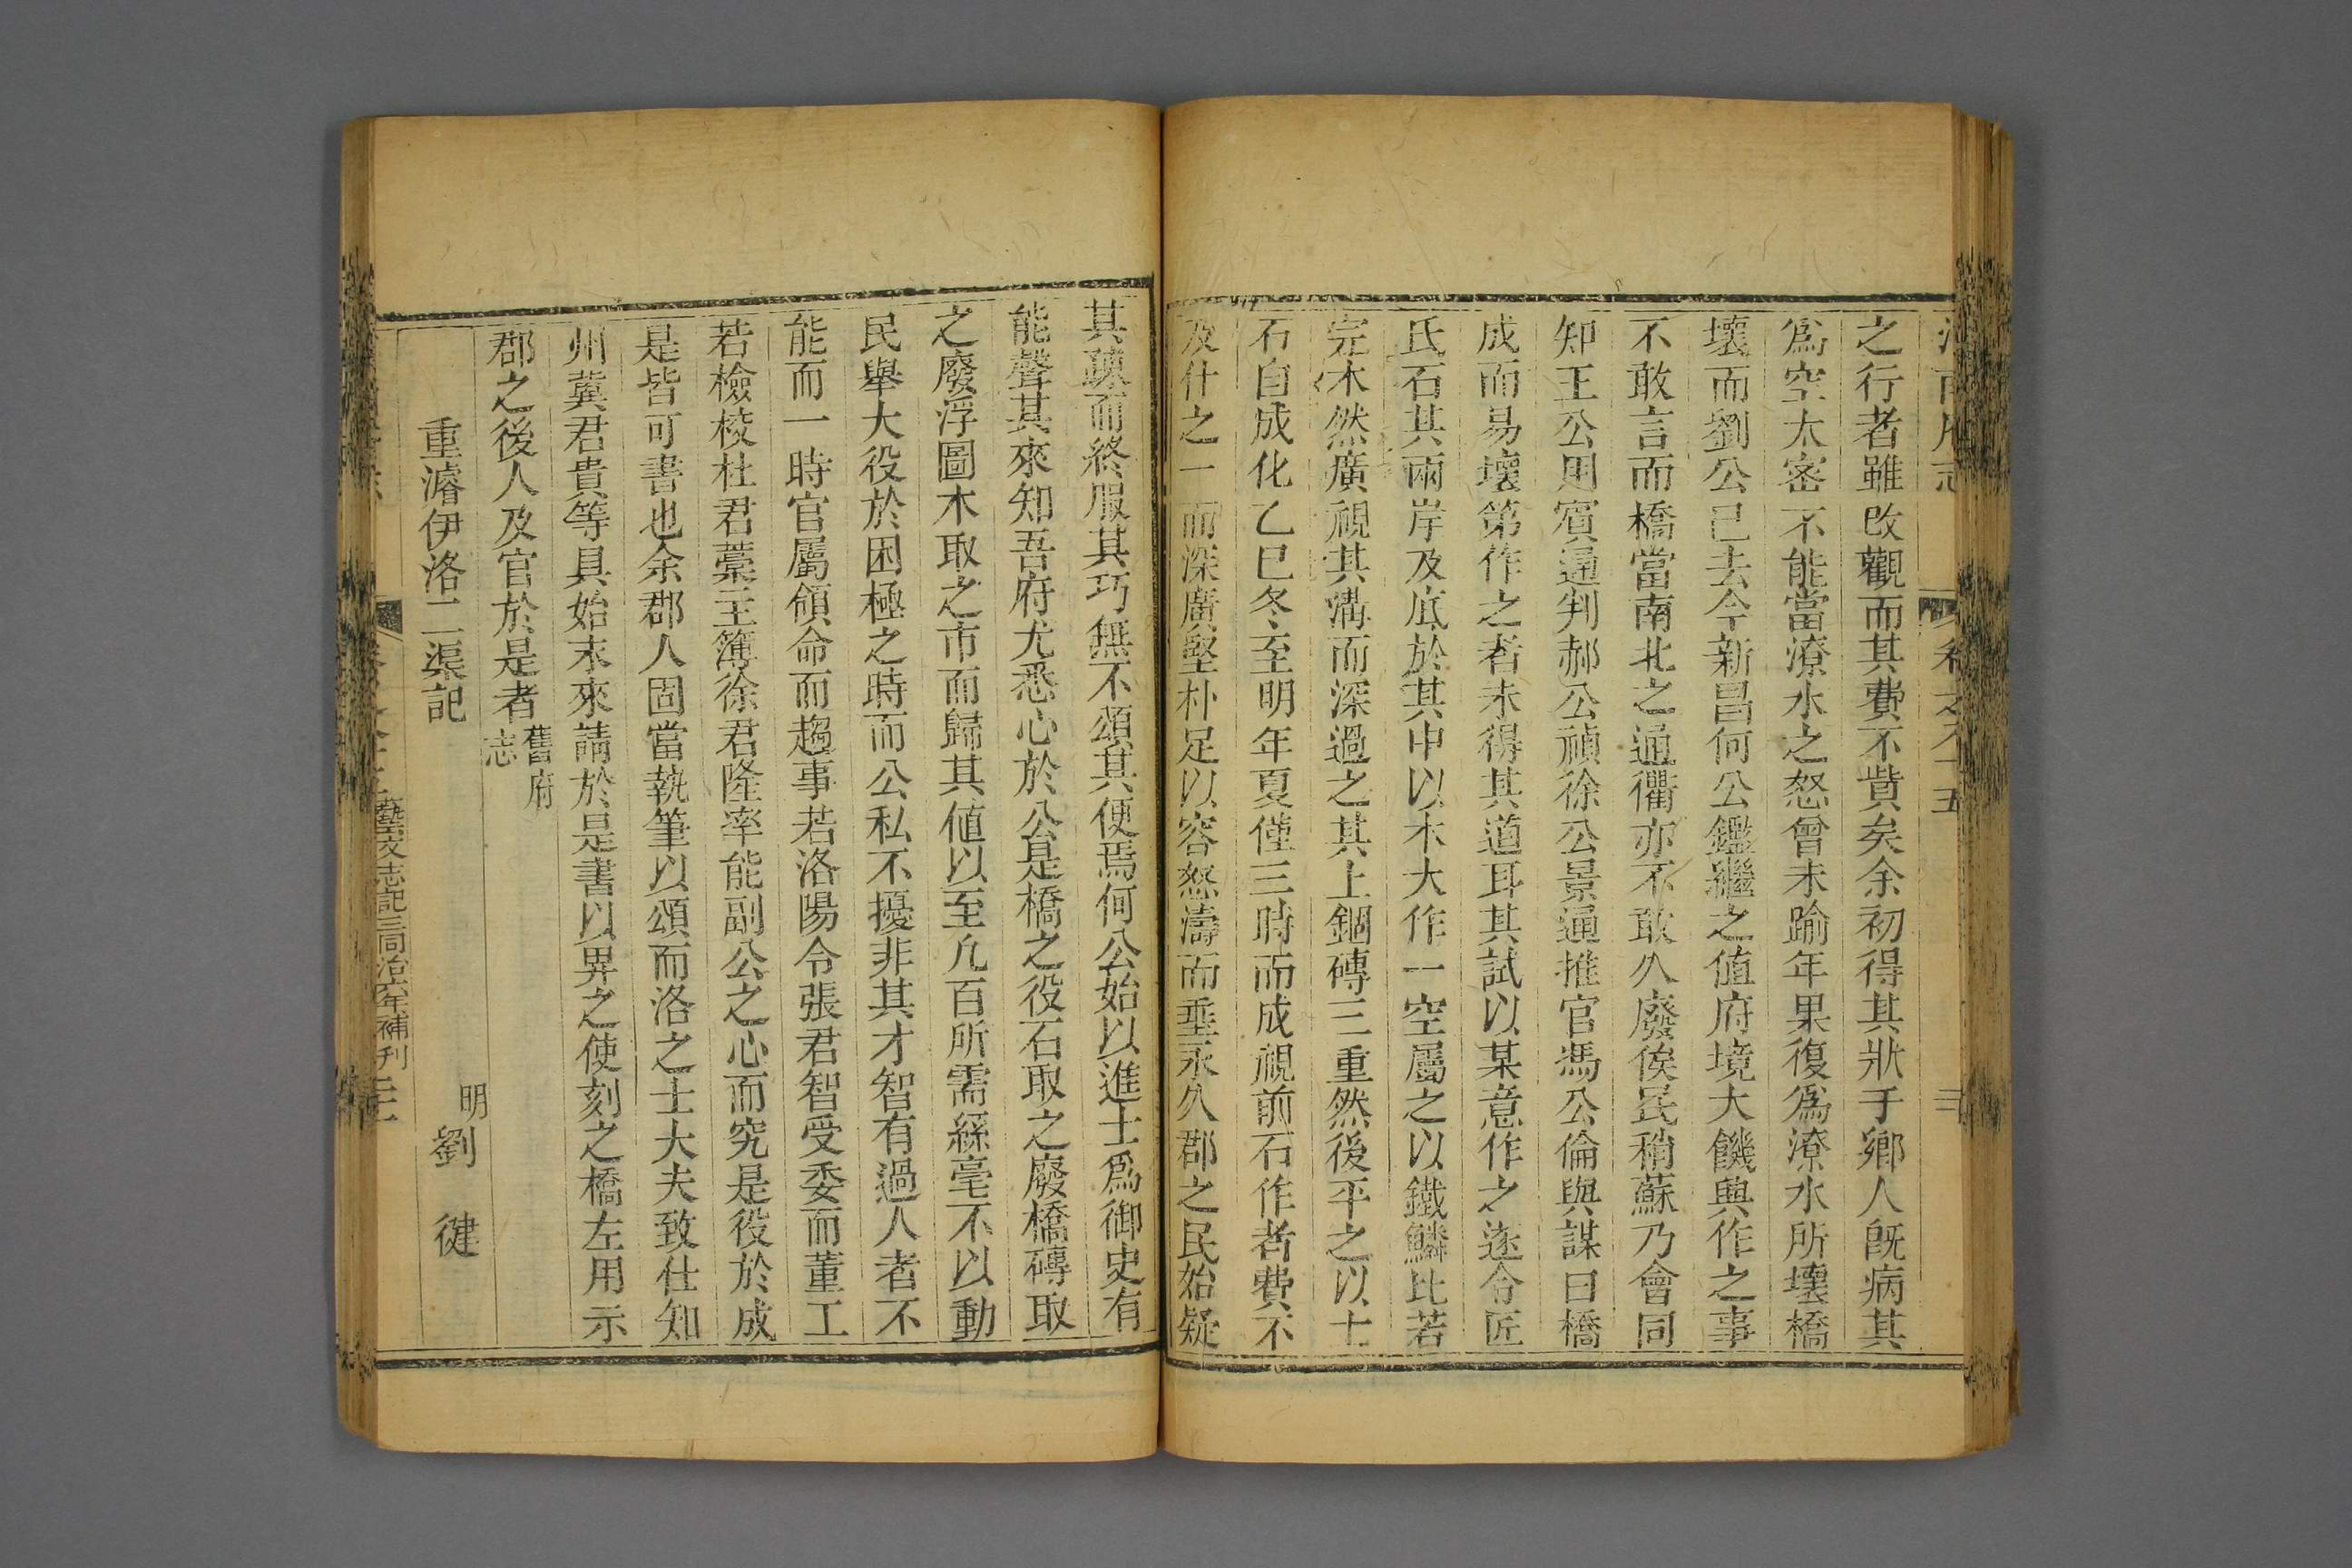 之行者雖改觀而其費不貲矣余初得其狀于鄉人旣病其
爲空太密不能當潦水之怒曾未踰年果復爲潦水所壞橋
壞而劉公已去今新昌何公鑑繼之值府境大饑興作之事
不敢言而橋當南北之通衢亦不敢久廢俟民稍蘇乃會同
知王公用賓通判郝公禎徐公景通推官馮公倫與謀曰橋
成而易壞第作之者未得其道耳其試以某意作之遂令匠
氏石其兩岸及底於其中以木大作一空屬之以鐵鱗比若
完木然廣視其溝而深過之其上錮磚三重然後平之以土
石自成化乙巳冬至明年夏僅三時而成視前石作者費不
及什之一而深廣堅朴足以容怒濤而垂永久郡之民始疑
其疎而終服其巧無不頌其便焉何公始以進士爲御史有
能聲其來知吾府尤悉心於公是橋之役石取之廢橋磚取
之廢浮圖木取之市而歸其値以至凢百所需絲毫不以動
民舉大役於困極之時而公私不擾非其才智有過人者不
能而一時官屬領命而趨事若洛陽令張君智受委而董工
若檢校杜君藁主簿徐君隆率能副公之心而究是役於成
是皆可書也余郡人固當執筆以頌而洛之士大夫致仕知
州冀君貴等具始末來請於是書以畀之使刻之橋左用示
郡之後人及官於是者
舊府
志
重濬伊洛二渠記
明劉健
藝文志記三同治六年補刊